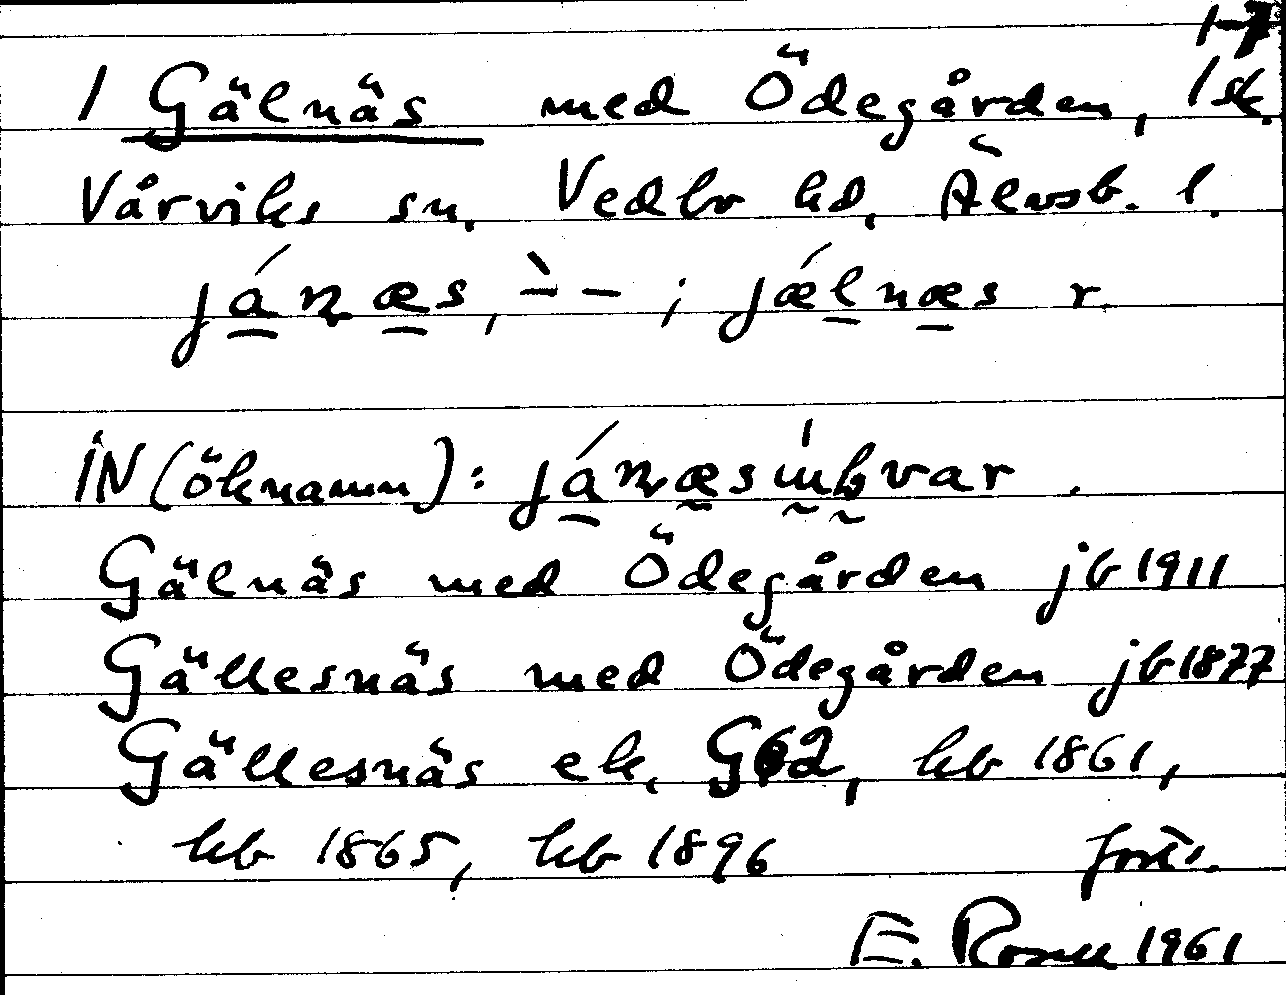 1-7
1 Gälnäs med Ödegården, 1 sk.
Vårviks sn. Vedbo hd. Älvsb. l.
já̱næ̱s, ̀– –; jǽlnæs r.
iN (öknamn): já̱næsi̍ŋkvar.
Gälnäs med Ödegården jb 1911
Gällesnäs med Ödegården jb 1877
Gällesnäs ek. G62, kb 1861,
kb 1865, kb 1896 forts.
E. Rosell 1961